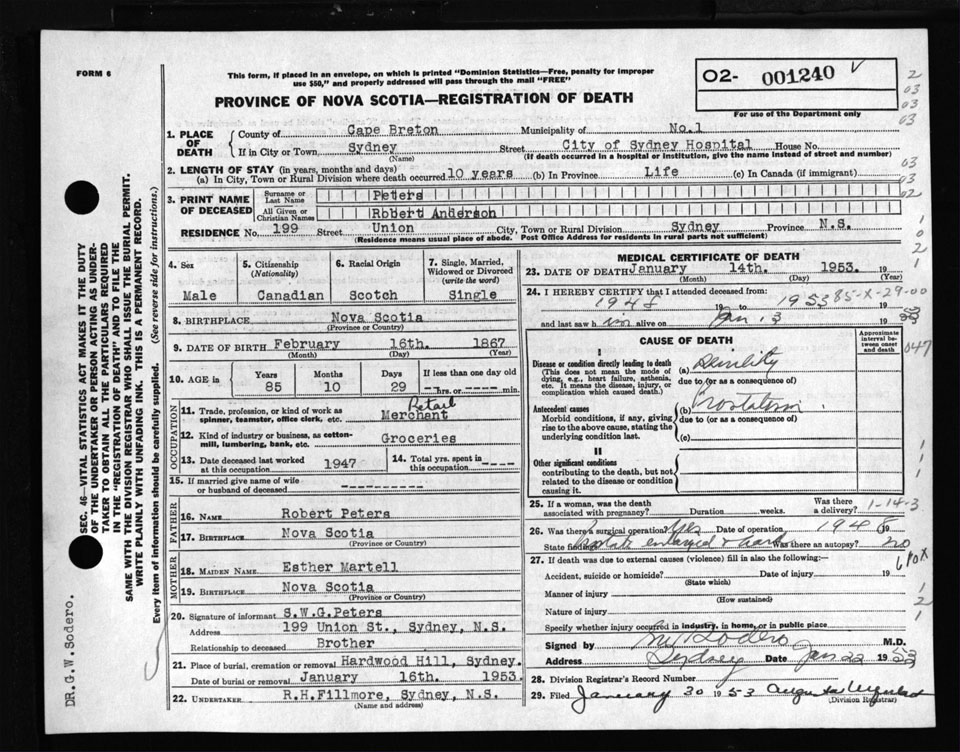 FORM 6
This form, if placed in an envelope, on which is printed "Dominion Statistics—Free, penalty for improper
use $50," and properly addressed will pass through the mail "FREE"
PROVINCE OF NOVA SCOTIA—REGISTRATION OF DEATH
O2- 001240
For use of the Department only
2
03
03
03
1. PLACE OF DEATH
County of Cape Breton Municipality of No.1
If in City or Town Sydney Street City of Sydney Hospital House No.
(Name) (If death occurred in a hospital or institution, give the name instead of street and number)
2. LENGTH OF STAY (in years, months and days)
(a) In City, Town or Rural Division where death occurred 10 years (b) In Province Life (c) In Canada (if immigrant)
03
03
02
3. PRINT NAME OF DECEASED
Surname or Last Name Peters
All Given or Christian Names Robert Anderson
RESIDENCE No. 199 Street Union City, Town or Rural Division Sydney Province N.S.
(Residence means usual place of abode. Post Office Address for residents in rural parts not sufficient)
4. Sex
Male
5. Citizenship (Nationality)
Canadian
6. Racial Origin
Scotch
7. Single, Married, Widowed or Divorced (write the word)
Single
8. BIRTHPLACE Nova Scotia
(Province or Country)
9. DATE OF BIRTH February 16th. 1867
(Month) (Day) (Year)
10. AGE in Years Months Days If less than one day old
85 10 29 --- hrs. or ---- min.
OCCUPATION
11. Trade, profession, or kind of work as spinner, teamster, office clerk, etc. Retail Merchant
12. Kind of industry or business, as cotton-mill, lumbering, bank, etc. Groceries
13. Date deceased last worked at this occupation 1947
14. Total yrs. spent in this occupation ----
15. If married give name of wife or husband of deceased -----
FATHER
16. NAME Robert Peters
17. BIRTHPLACE Nova Scotia
(Province or Country)
MOTHER
18. MAIDEN NAME Esther Martell
19. BIRTHPLACE Nova Scotia
(Province or Country)
20. Signature of informant S.W.G.Peters
Address 199 Union St., Sydney, N.S.
Relationship to deceased Brother
21. Place of burial, cremation or removal Hardwood Hill, Sydney.
Date of burial or removal January 16th. 1953.
22. UNDERTAKER R.H.Fillmore, Sydney, N.S.
(Name and address)
MEDICAL CERTIFICATE OF DEATH
23. DATE OF DEATH January 14th. 1953. 19
(Month) (Day) (Year)
24. I HEREBY CERTIFY that I attended deceased from:
1948 19 to 1953 85-X-29-00
and last saw h im alive on Jan 13 19 53
CAUSE OF DEATH
Approximate interval between onset and death
047
I
Disease or condition directly leading to death
(This does not mean the mode of dying, e.g., heart failure, asthenia, etc. It means the disease, injury, or complication which caused death.)
(a)
due to (or as a consequence of)
Antecedent causes
Morbid conditions, if any, giving rise to the above cause, stating the underlying condition last.
(b)
due to (or as a consequence of)
(c)
II
Other significant conditions
contributing to the death, but not related to the disease or condition causing it.
25. If a woman, was the death associated with pregnancy? Duration weeks. Was there a delivery?
1-14-3
26. Was there a surgical operation? Yes Date of operation 1948
State findings Prostate enlarged & hard Was there an autopsy? no
27. If death was due to external causes (violence) fill in also the following:
610X
Accident, suicide or homicide? Date of injury 19
(State which)
Manner of injury
(How sustained)
Nature of injury
Specify whether injury occurred in industry, in home, or in public place
Signed by Sodero M.D.
Address Sydney Date Jan 22 19 53
28. Division Registrar's Record Number
29. Filed January 30 1953
(Division Registrar)
SEC. 46—VITAL STATISTICS ACT MAKES IT THE DUTY
OF THE UNDERTAKER OR PERSON ACTING AS UNDER-
TAKER TO OBTAIN ALL THE PARTICULARS REQUIRED
IN THE "REGISTRATION OF DEATH" AND TO FILE THE
SAME WITH THE DIVISION REGISTRAR WHO SHALL ISSUE THE BURIAL PERMIT.
WRITE PLAINLY WITH UNFADING INK. THIS IS A PERMANENT RECORD.
Every item of information should be carefully supplied. (See reverse side for instructions.)
DR.G.W.Sodero.